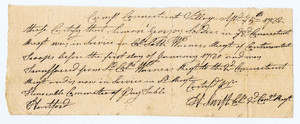 Camp Connecticut Village Sept 26th 1780
these Certify that Simeon Soldier in 2d Connecticut
Regt was in Service in Col. Seth Warners Regt of Continental
Troops before the first day of January 1780 and was
Transferred from Sd Col Warners Regt to the 2d Connecticut
Regt and is now in Service in Sd Regt
Certified pr
Honorable Committee of Pay Table
Hartford
H. Swift Col 2d Con Regt